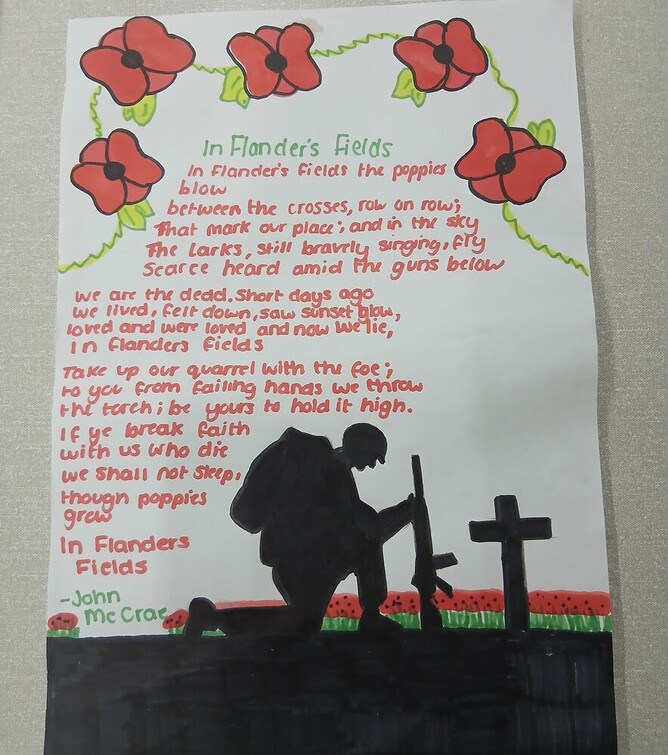 In Flander's Fields
In Flander's Fields the poppies
blow
between the crosses, row on row;
That mark our place; and in the sky
The Larks, still bravely singing, fly
Scarce heard amid the guns below
we are the dead. Short days ago
we lived, felt down, saw sunset glow,
loved and were loved and now we lie,
In Flanders Fields
Take up our quarrel with the foe;
to you from failing hands we throw
the torch; be yours to hold it high.
If ye break faith
with us who die
we shall not sleep,
though poppies
grow
In Flanders
Fields
-John
McCrae